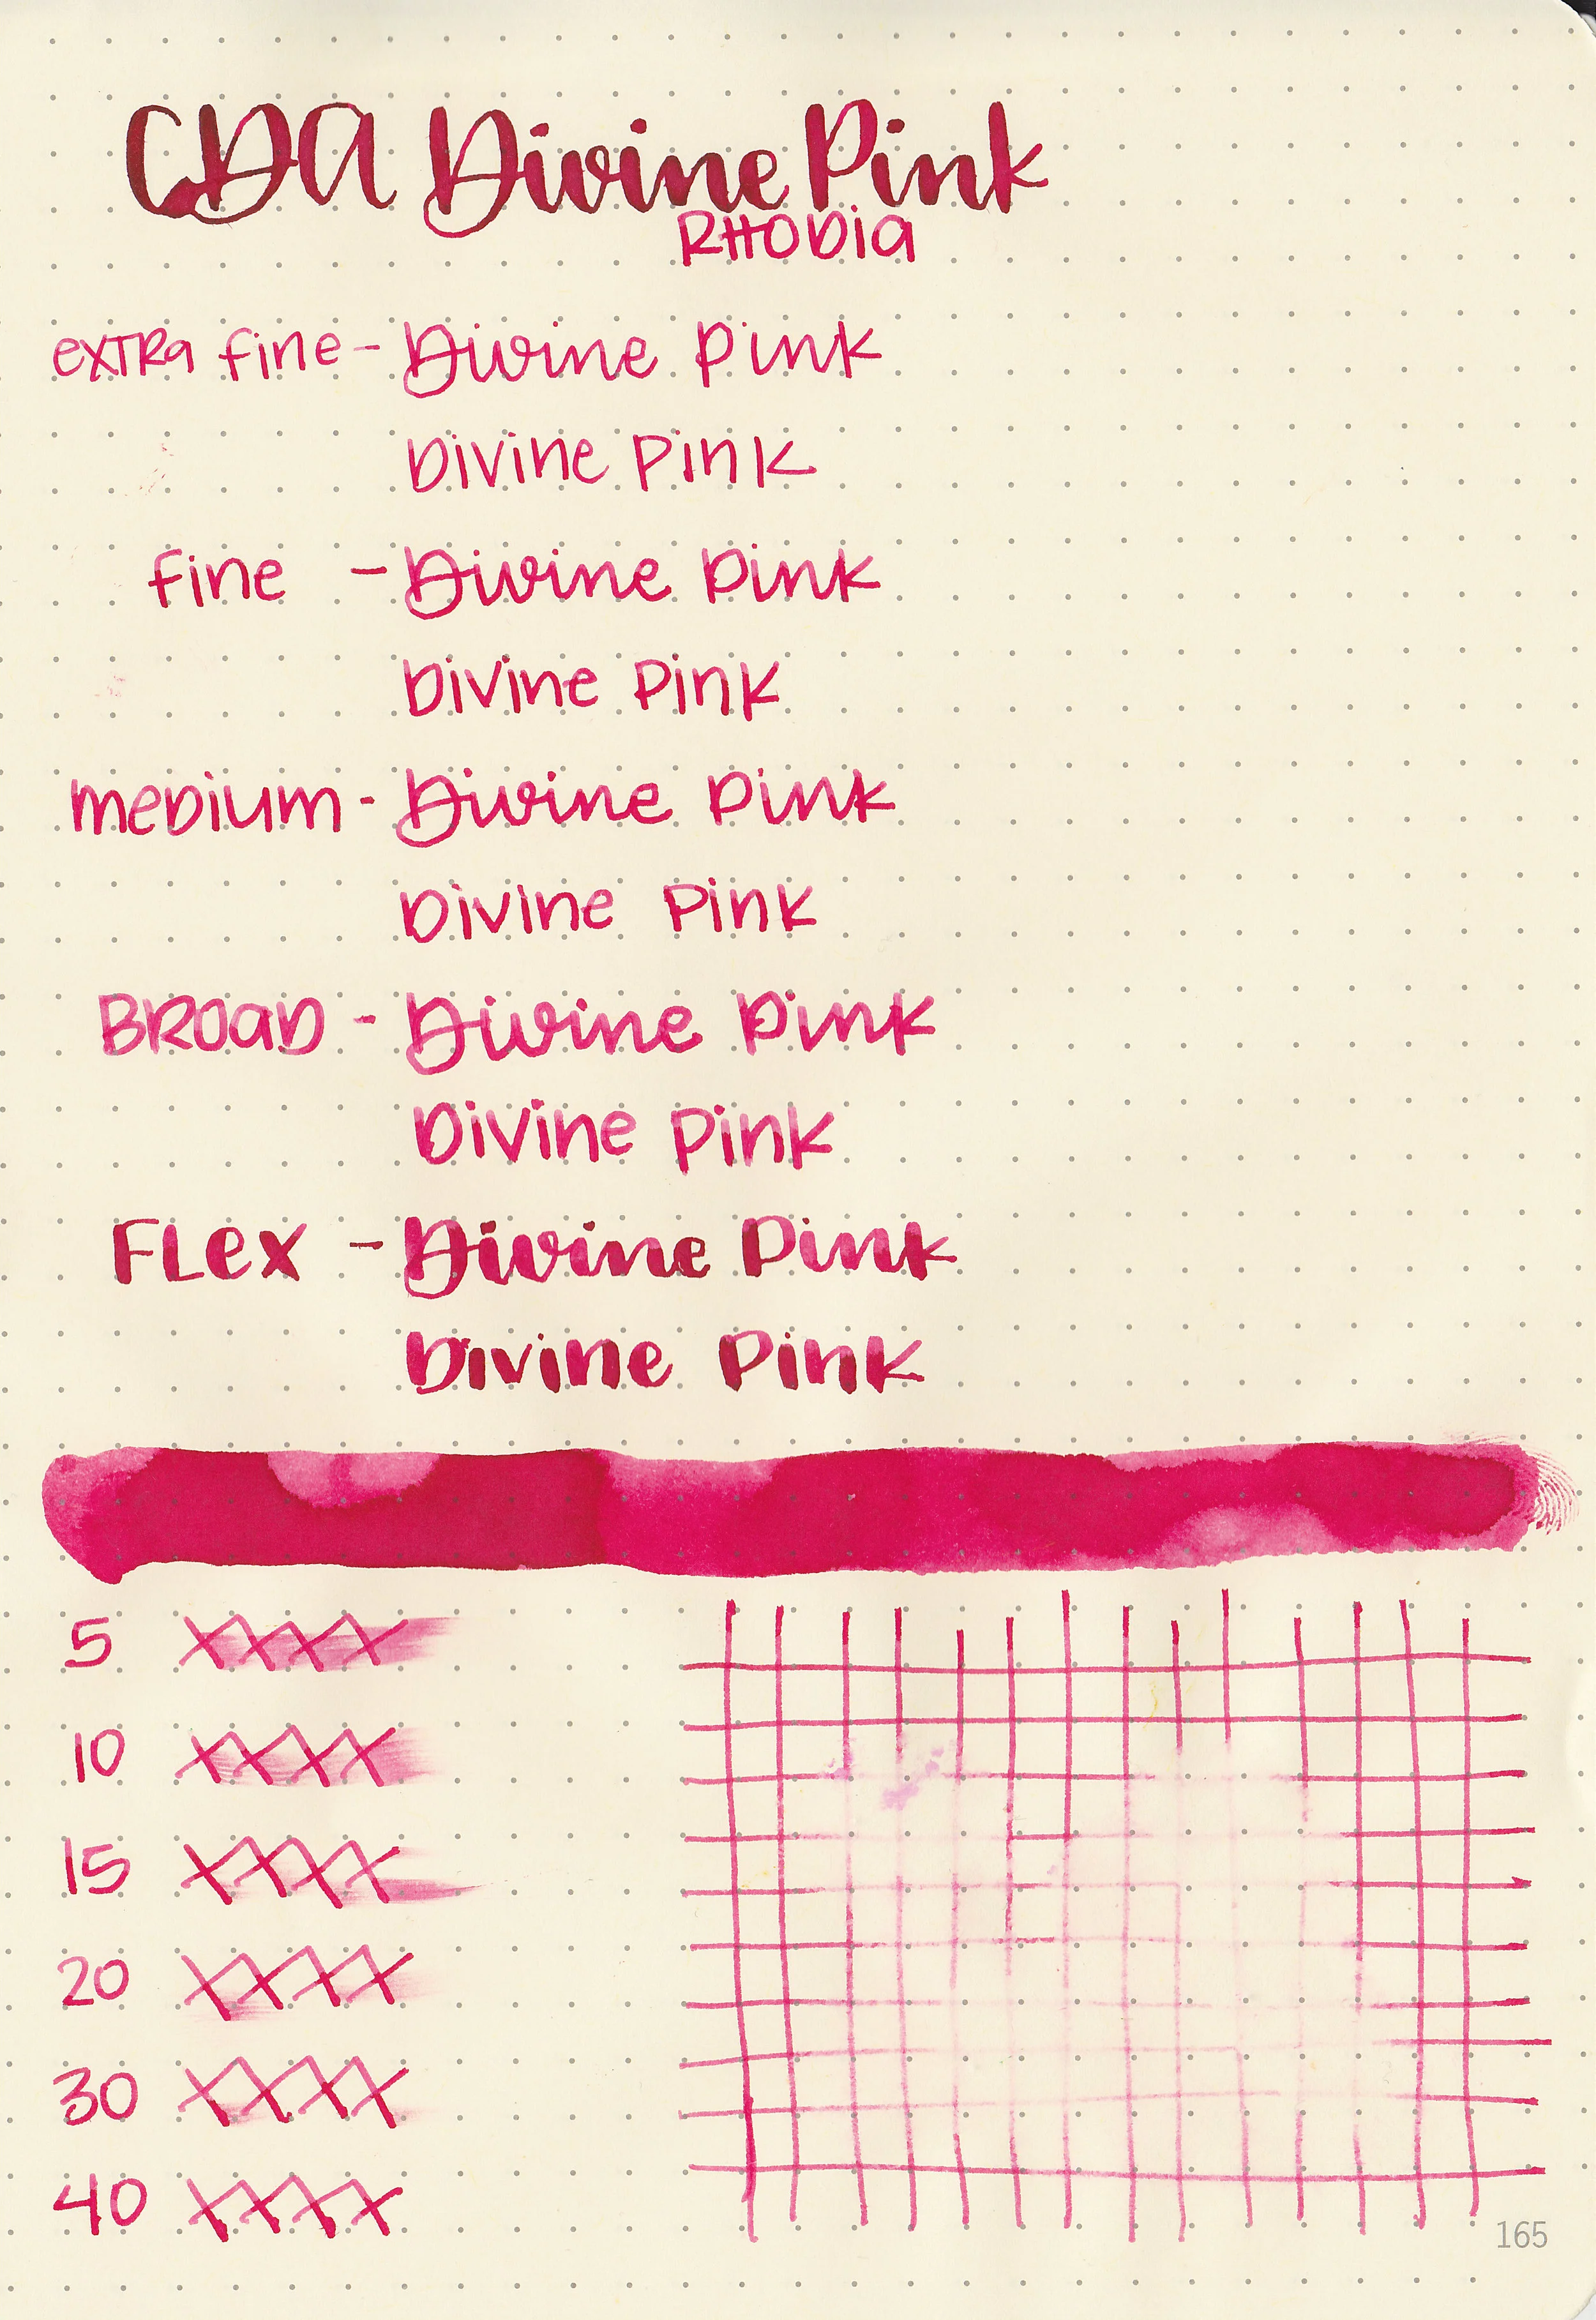 CDA Divine Pink
RHODIA
extra fine - Divine Pink
Divine Pink
fine - Divine Pink
Divine Pink
medium - Divine Pink
Divine Pink
BROAD - Divine Pink
Divine Pink
FLex - Divine Pink
Divine Pink
5 XXXX
10 XXXX
15 XXXX
20 XXXX
30 XXXX
40 XXXX
165